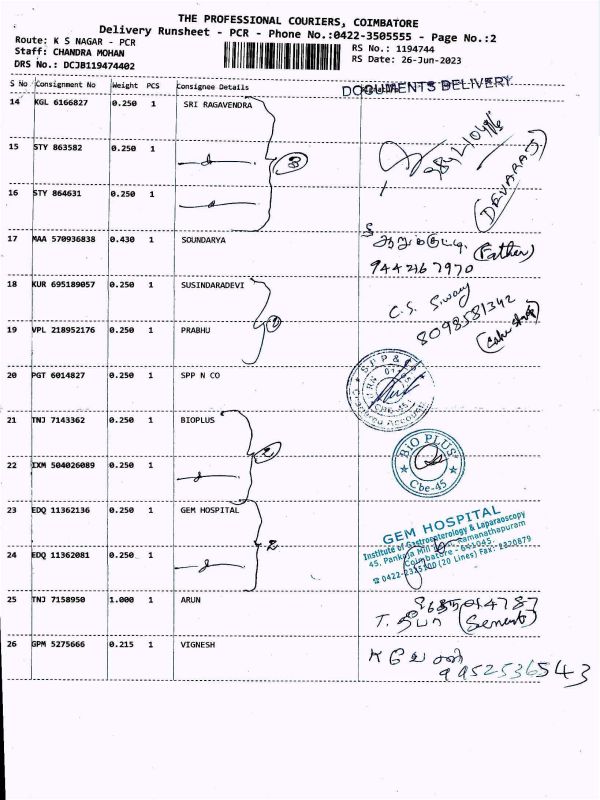 THE PROFESSIONAL COURIERS, COIMBATORE
Delivery Runsheet - PCR - Phone No.:0422-3505555 - Page No.:2
Route: K S NAGAR - PCR
Staff: CHANDRA MOHAN
DRS No.: DCJB119474402
RS No.: 1194744
RS Date: 26-Jun-2023
S No Consignment No Weight PCS Consignee Details
DOCUMENTS DELIVERY
14 KGL 6166827 0.250 1 SRI RAGAVENDRA
15 STY 863582 0.250 1
3
16 STY 864631 0.250 1
(DEVARAJ)
17 MAA 570936838 0.430 1 SOUNDARYA
(Father)
9442167970
18 KUR 695189057 0.250 1 SUSINDARADEVI
C.S. Swamy
8098581342
19 VPL 218952176 0.250 1 PRABHU
20 PGT 6014827 0.250 1 SPP N CO
SPP &
CBE-45
Chartered Accounts
21 TNJ 7143362 0.250 1 BIOPLUS
BIO PLUS
Cbe-45
22 IXM 504026089 0.250 1
23 EDQ 11362136 0.250 1 GEM HOSPITAL
2
GEM HOSPITAL
Institute of Gastroenterology & Laparoscopy
45, Pankaja Mill Road, Ramanathapuram
Coimbatore - 641045.
(20 Lines) Fax: 2320879
24 EDQ 11362081 0.250 1
25 TNJ 7158950 1.000 1 ARUN
T. தீபா
26 GPM 5275666 0.215 1 VIGNESH
9952536543